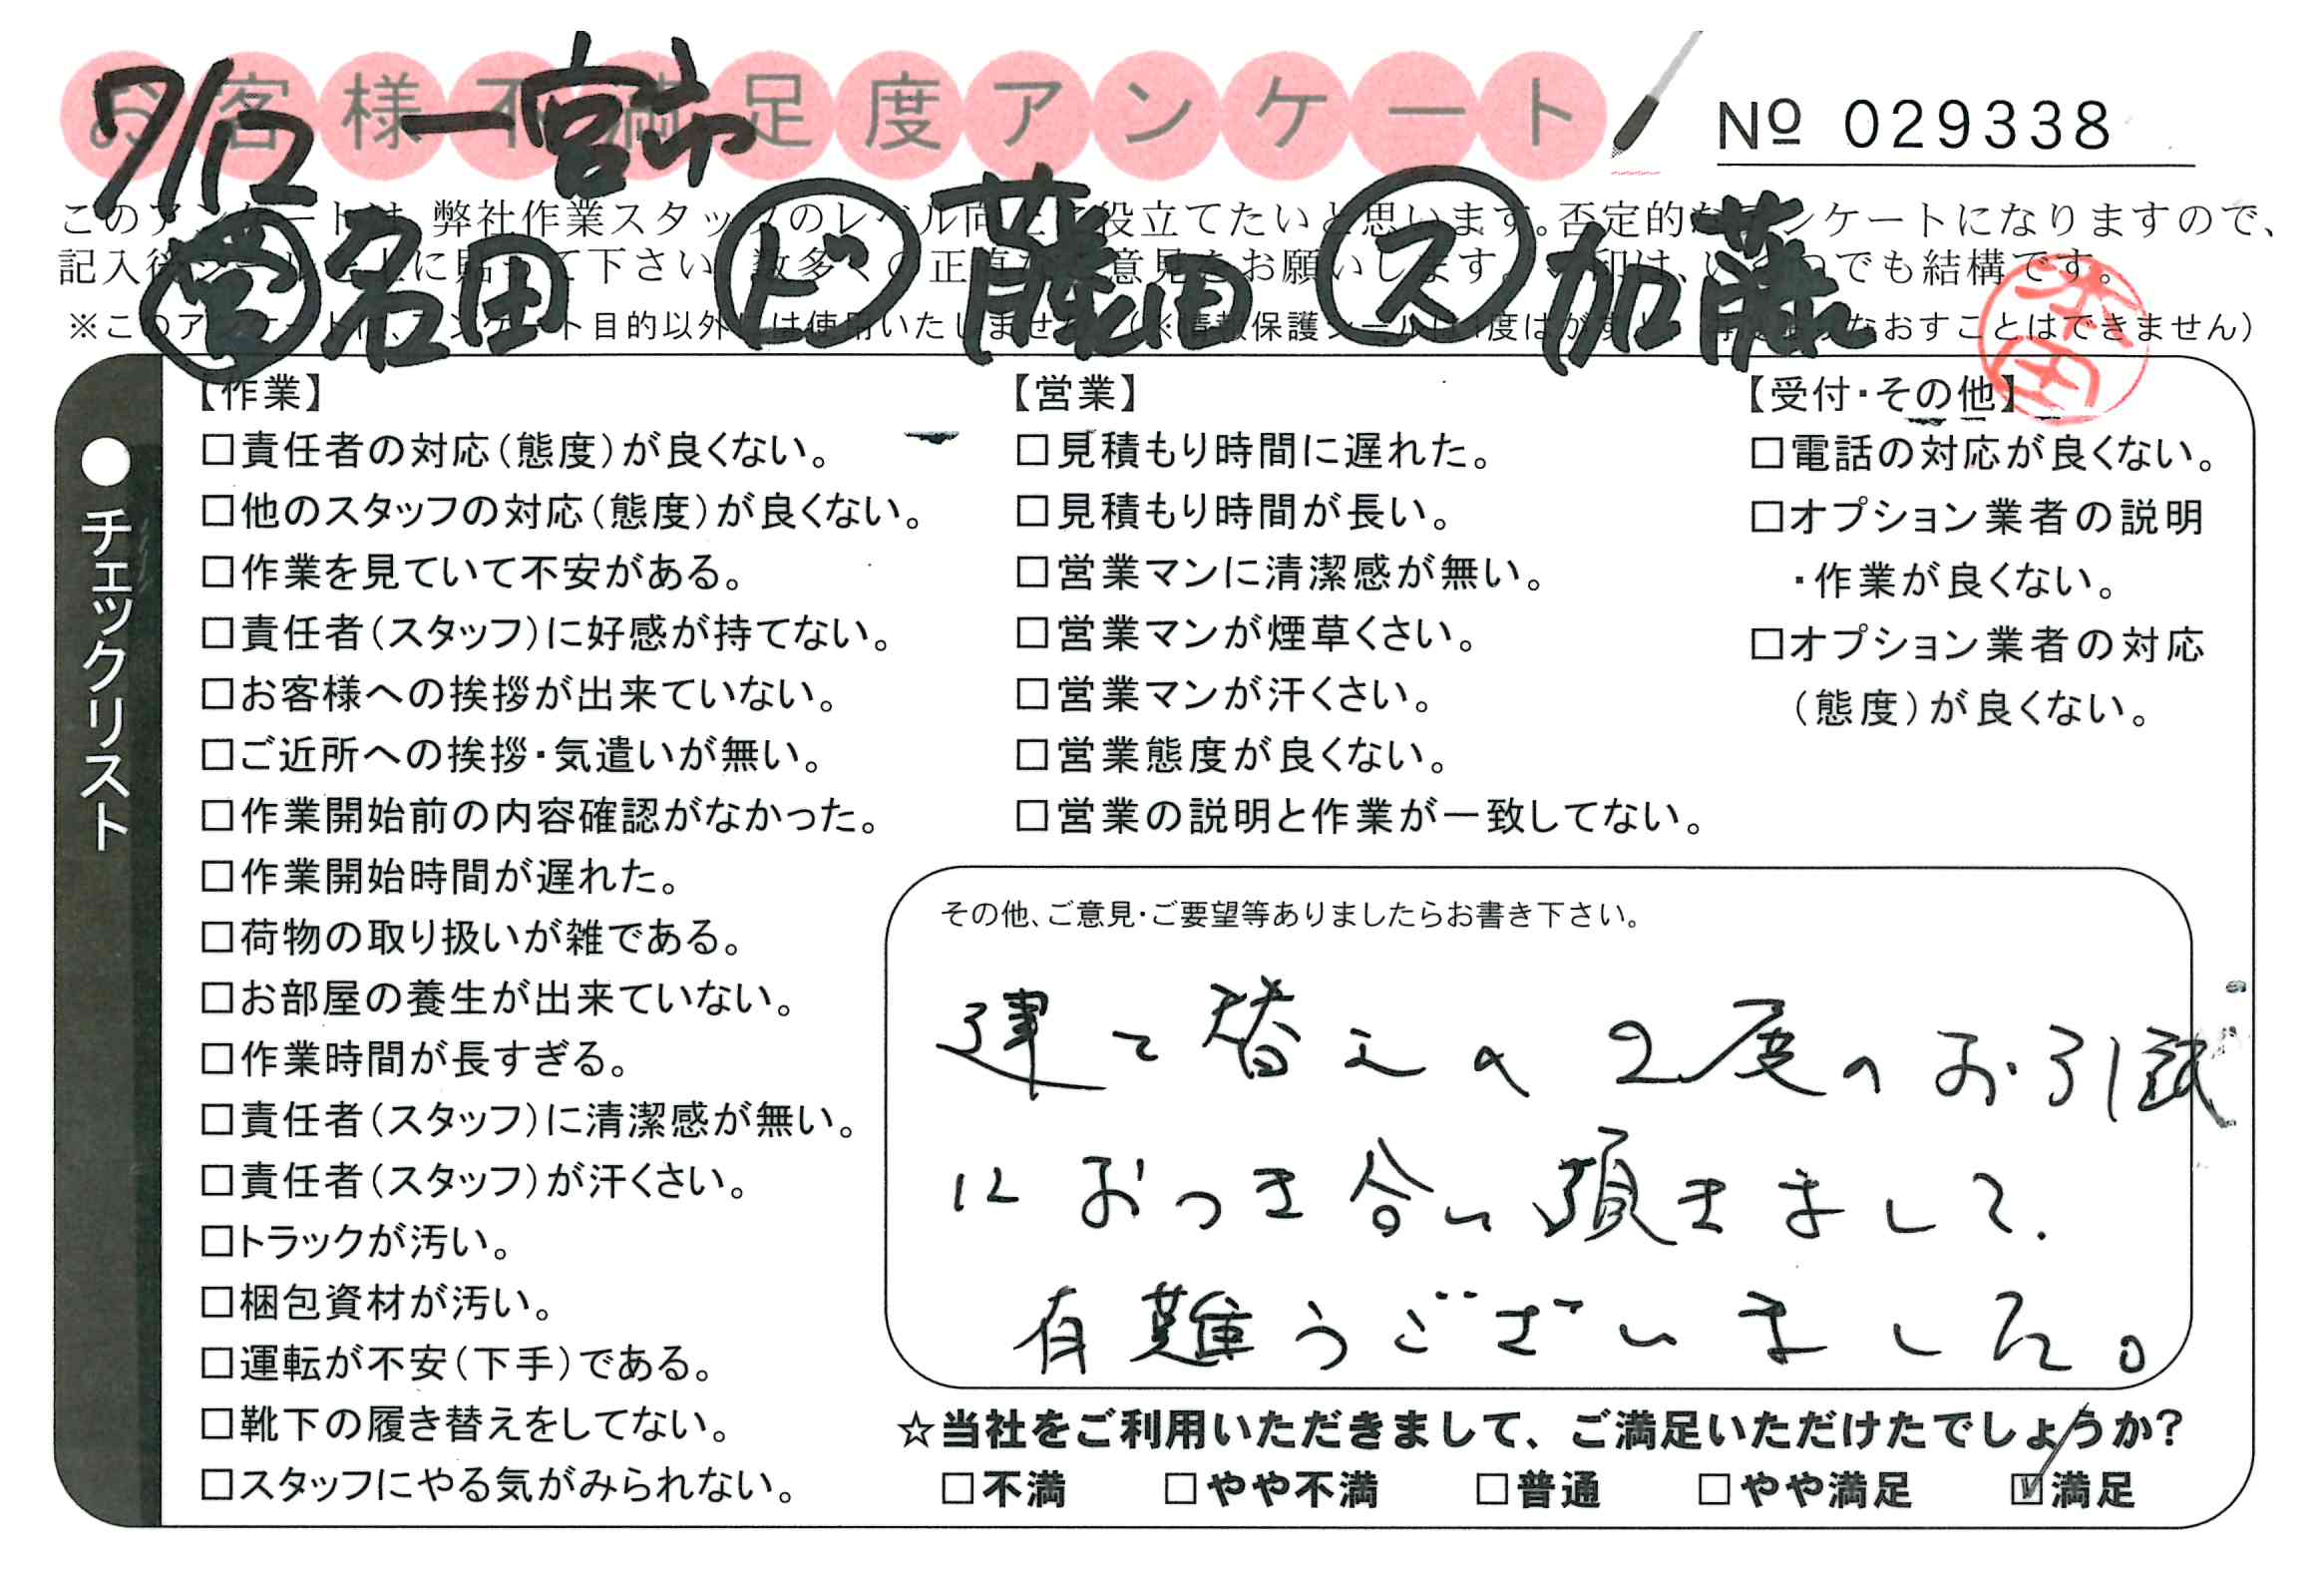 お客様不満足度アンケート
7/12 一宮市
№ 029338
このアンケートは、弊社作業スタッフのレベル向上に役立てたいと思います。否定的なアンケートになりますので、
記入後シールを上に貼って下さい。数多くの正直な意見をお願いします。✓印は、いくつでも結構です。
営 名田 ド 藤田 ス 加藤
※このアンケートは、アンケート目的以外には使用いたしません。(※情報保護シールは1度はがすと、再度貼りなおすことはできません)
●チェックリスト
【作業】
□責任者の対応(態度)が良くない。
□他のスタッフの対応(態度)が良くない。
□作業を見ていて不安がある。
□責任者(スタッフ)に好感が持てない。
□お客様への挨拶が出来ていない。
□ご近所への挨拶・気遣いが無い。
□作業開始前の内容確認がなかった。
□作業開始時間が遅れた。
□荷物の取り扱いが雑である。
□お部屋の養生が出来ていない。
□作業時間が長すぎる。
□責任者(スタッフ)に清潔感が無い。
□責任者(スタッフ)が汗くさい。
□トラックが汚い。
□梱包資材が汚い。
□運転が不安(下手)である。
□靴下の履き替えをしてない。
□スタッフにやる気がみられない。
【営業】
□見積もり時間に遅れた。
□見積もり時間が長い。
□営業マンに清潔感が無い。
□営業マンが煙草くさい。
□営業マンが汗くさい。
□営業態度が良くない。
□営業の説明と作業が一致してない。
【受付・その他】
□電話の対応が良くない。
□オプション業者の説明
・作業が良くない。
□オプション業者の対応
(態度)が良くない。
その他、ご意見・ご要望等ありましたらお書き下さい。
建て替えの2度のお引越
におつき合い頂きまして.
有難うございました。
☆当社をご利用いただきまして、ご満足いただけたでしょうか?
□不満 □やや不満 □普通 □やや満足 ☑満足